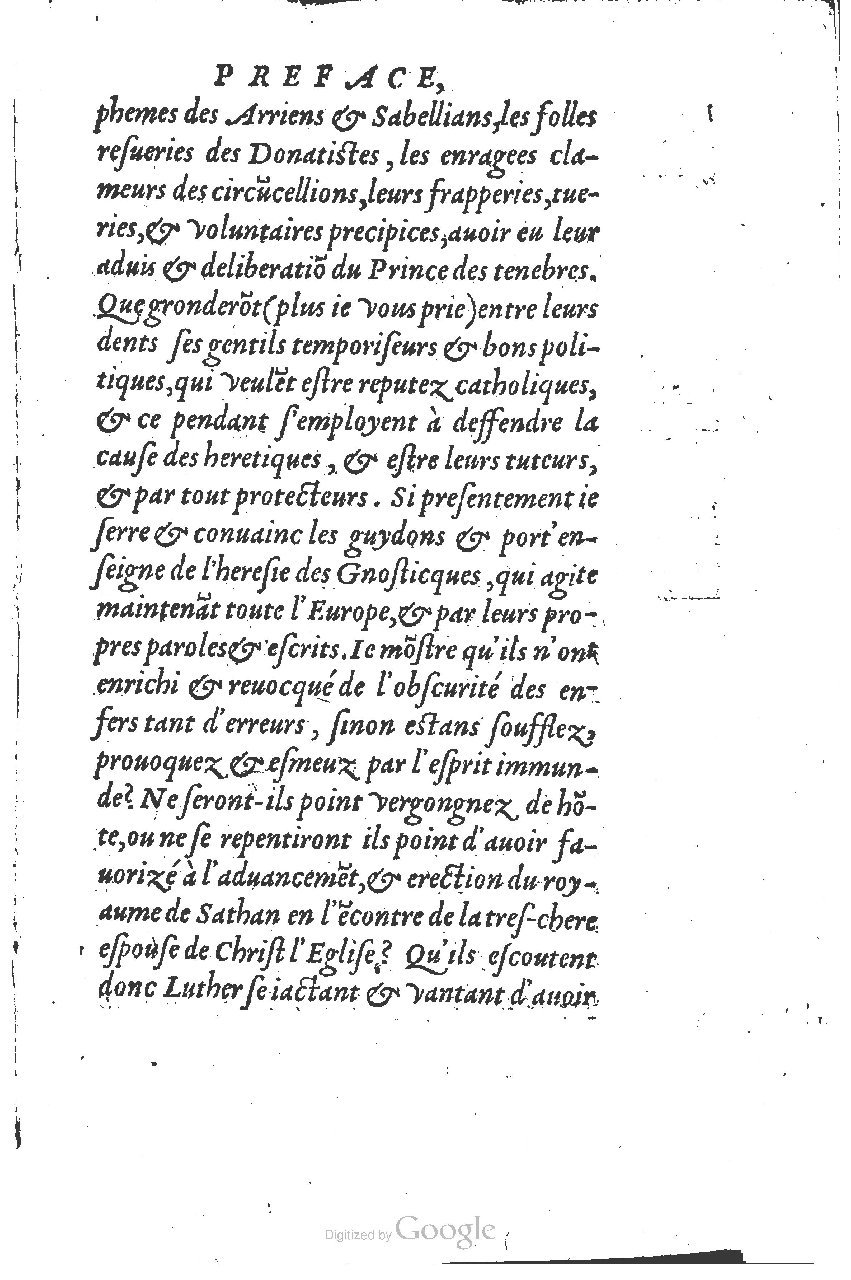 PREFACE,
phemes des Arriens & Sabellians, les folles
reſueries des Donatiſtes, les enragees cla-
meurs des circũcellions, leurs frapperies, tue-
ries, & voluntaires precipices, auoir eu leur
aduis & deliberatiõ du Prince des tenebres.
Que gronderõt (plus ie vous prie) entre leurs
dents ſes gentils temporiſeurs & bons poli-
tiques, qui veulẽt eſtre reputez catholiques,
& ce pendant ſ'employent à deffendre la
cauſe des heretiques, & eſtre leurs tuteurs,
& par tout protecteurs. Si preſentement ie
ſerre & conuainc les guydons & port'en-
ſeigne de l'hereſie des Gnoſticques, qui agite
maintenãt toute l'Europe, & par leurs pro-
pres paroles & eſcrits. Ie mõſtre qu'ils n'ont
enrichi & reuocqué de l'obſcurité des en-
fers tant d'erreurs, ſinon eſtans ſoufflez,
prouoquez & eſmeuz par l'eſprit immun-
de? Ne ſeront-ils point vergongnez de hõ-
te, ou ne ſe repentiront ils point d'auoir fa-
uorizé à l'aduancemẽt, & erection du roy-
aume de Sathan en l'ẽcontre de la treſ-chere
eſpouſe de Chriſt l'Egliſe? Qu'ils eſcoutent
donc Luther ſe iactant & vantant d'auoir
Digitized by Google